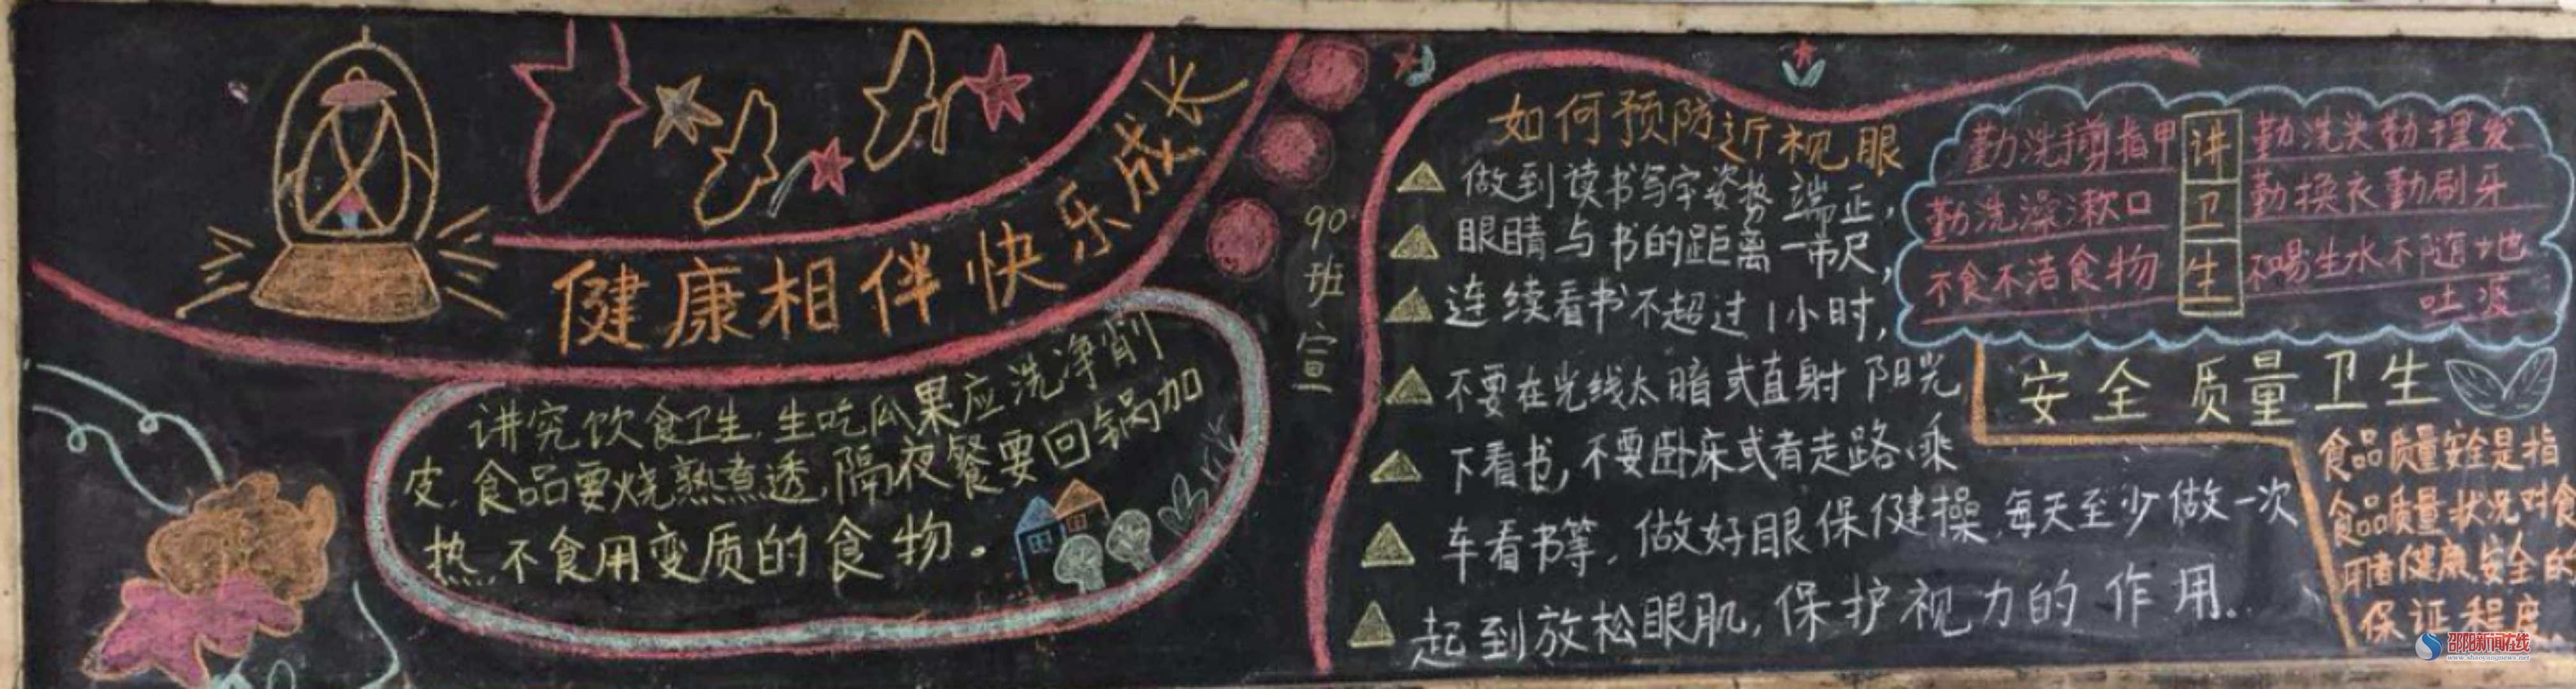 健康相伴快乐成长
讲究饮食卫生,生吃瓜果应洗净削
皮,食品要烧熟煮透,隔夜餐要回锅加
热,不食用变质的食物。
90班宣
如何预防近视眼
做到读书写字姿势端正,
眼睛与书的距离一市尺,
连续看书不超过1小时,
不要在光线太暗或直射阳光
下看书,不要卧床或者走路、乘
车看书等,做好眼保健操,每天至少做一次
起到放松眼肌,保护视力的作用.
讲卫生
勤洗手剪指甲
勤洗澡漱口
不食不洁食物
勤洗头勤理发
勤换衣勤刷牙
不喝生水不随地
吐痰
安全质量卫生
食品质量安全是指
食品质量状况对食
用者健康、安全的
保证程度.
邵阳新闻在线
www.shaoyangnews.net